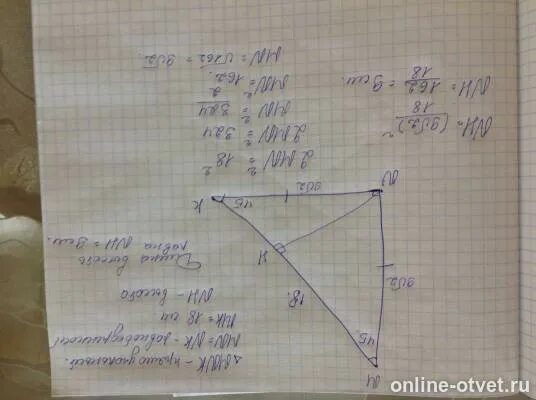 △MNK - прямоугольный.
MN = NK - равнобедренный
MK = 18 см
NH - высота
Длина высоты
равна NH = 9 см.
M
45
9√2
18.
H
N
9√2
45
K
2MN² = 18²
2MN² = 324
MN² = 324/2
MN² = 162
MN = √162 = 9√2.
NH = (9√2)²/18
NH = 162/18 = 9 см.
online-otvet.ru